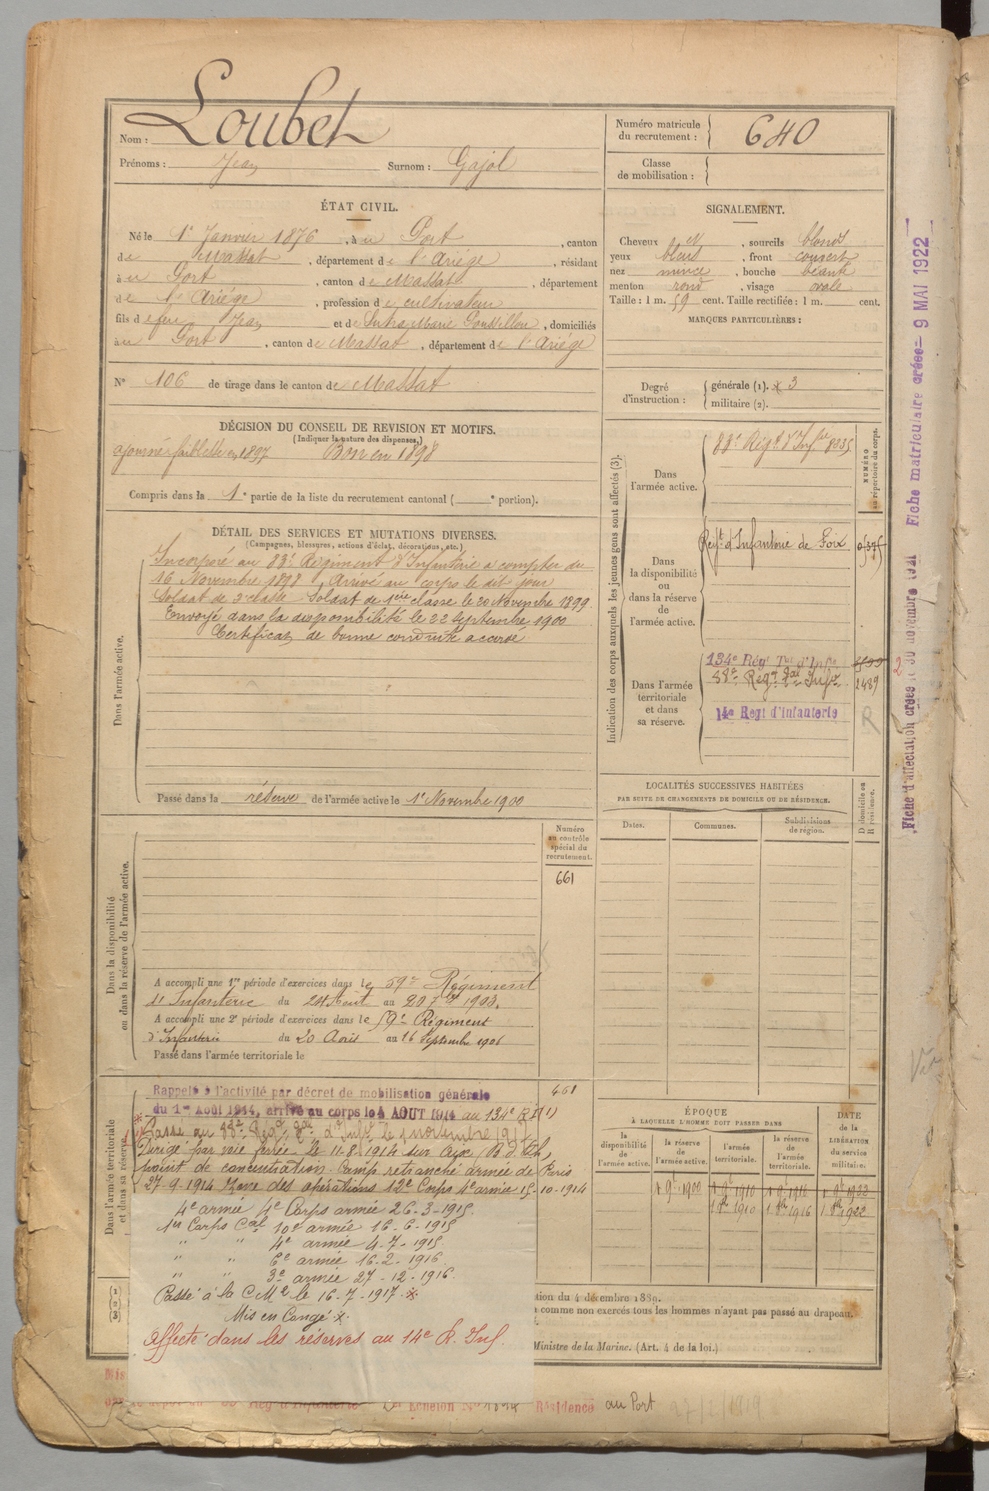 Nom : Loubet
Prénoms : Jean Surnom : Gajol
Numéro matricule du recrutement : 640
Classe de mobilisation :
ÉTAT CIVIL.
Né le 1er Janvier 1876, à u Port, canton
de Massat, département de l'Ariége, résidant
à u Port, canton de Massat, département
de l'Ariége, profession de cultivateur
fils de feu Jean et de Marie, domiciliés
à u Port, canton de Massat, département de l'Ariége
N° 106 de tirage dans le canton de Massat
SIGNALEMENT.
Cheveux , sourcils blonds
yeux bleus, front couvert
nez mince, bouche béante
menton rond, visage ovale
Taille : 1 m. 59 cent. Taille rectifiée : 1 m. cent.
MARQUES PARTICULIÈRES :
Degré d'instruction : générale (1). 3
militaire (2).
DÉCISION DU CONSEIL DE REVISION ET MOTIFS.
(Indiquer la nature des dispenses.)
ajourné faiblesse en 1897 Bon en 1898
Compris dans la 1e partie de la liste du recrutement cantonal ( e portion).
DÉTAIL DES SERVICES ET MUTATIONS DIVERSES.
(Campagnes, blessures, actions d'éclat, décorations, etc.)
Dans l'armée active.
Incorporé au 83e Régiment d'Infanterie à compter du
16 Novembre 1898 Arrivé au corps le dit jour
Soldat de 2e classe Soldat de 1ère classe le 20 Novembre 1899
Envoyé dans la disponibilité le 22 Septembre 1900
Certificat de bonne conduite accordé
Passé dans la réserve de l'armée active le 1er Novembre 1900
Indication des corps auxquels les jeunes gens sont affectés (3).
NUMÉRO au répertoire du corps.
Dans l'armée active.
83e Régt d'Infie 8335
Dans la disponibilité ou dans la réserve de l'armée active.
Régt d'Infanterie de Foix
Dans l'armée territoriale et dans sa réserve.
134e Régt Tal d'Infie
88e Régt Tal Infie 2489
14e Regt d'infanterie R
LOCALITÉS SUCCESSIVES HABITÉES
PAR SUITE DE CHANGEMENTS DE DOMICILE OU DE RÉSIDENCE.
Dates. Communes. Subdivisions de région.
D domicile ou R résidence.
Dans la disponibilité ou dans la réserve de l'armée active.
Numéro au contrôle spécial du recrutement.
661
A accompli une 1re période d'exercices dans le 59e Régiment
d'Infanterie du 24 Août au 20 7bre 1903.
A accompli une 2e période d'exercices dans le 59e Régiment
d'Infanterie du 20 Août au 16 Septembre 1906
Passé dans l'armée territoriale le
Dans l'armée territoriale et dans sa réserve.
Rappelé à l'activité par décret de mobilisation générale 661
du 1er Août 1914, arrivé au corps le 4 AOUT 1914 au 134e R.I (1)
Passé au 88e Régt Tal d'Infie le 1 novembre
Dirigé par voie ferrée le 11-8-1914 sur
point de concentration Camp retranché armée de Paris
27-9-1914 Zone des opérations 12e Corps 4e armée 15-10-1914
4e armée 4e Corps armée 26-3-1915.
1er Corps Cal 10e armée 16-6-1915
" " 4e armée 4-7-1915
" " 6e armée 16-2-1916
" " 3e armée 27-12-1916.
Passé à la C.M.2 le 16-7-1917 *
Mis en Congé *
affecté dans les réserves au 14e R. Inf
ÉPOQUE
À LAQUELLE L'HOMME DOIT PASSER DANS
la disponibilité de l'armée active.
la réserve de l'armée active.
l'armée territoriale.
la réserve de l'armée territoriale.
DATE de la LIBÉRATION du service militaire.
1 9bre 1900 1 9bre 1910 1 9bre 1916 1 9bre 1922
1 8bre 1910 1 8bre 1916 1 8bre 1922
1
2
3
tion du 4 décembre 1889.
à comme non exercés tous les hommes n'ayant pas passé au drapeau.
Ministre de la Marine. (Art. 4 de la loi.)
Mis
Régt d'Infanterie Echelon Résidence au Port 27/2/1919
Fiche d'affectation créée le 30 novembre 1921
Fiche matriculaire créée = 9 MAI 1922
2